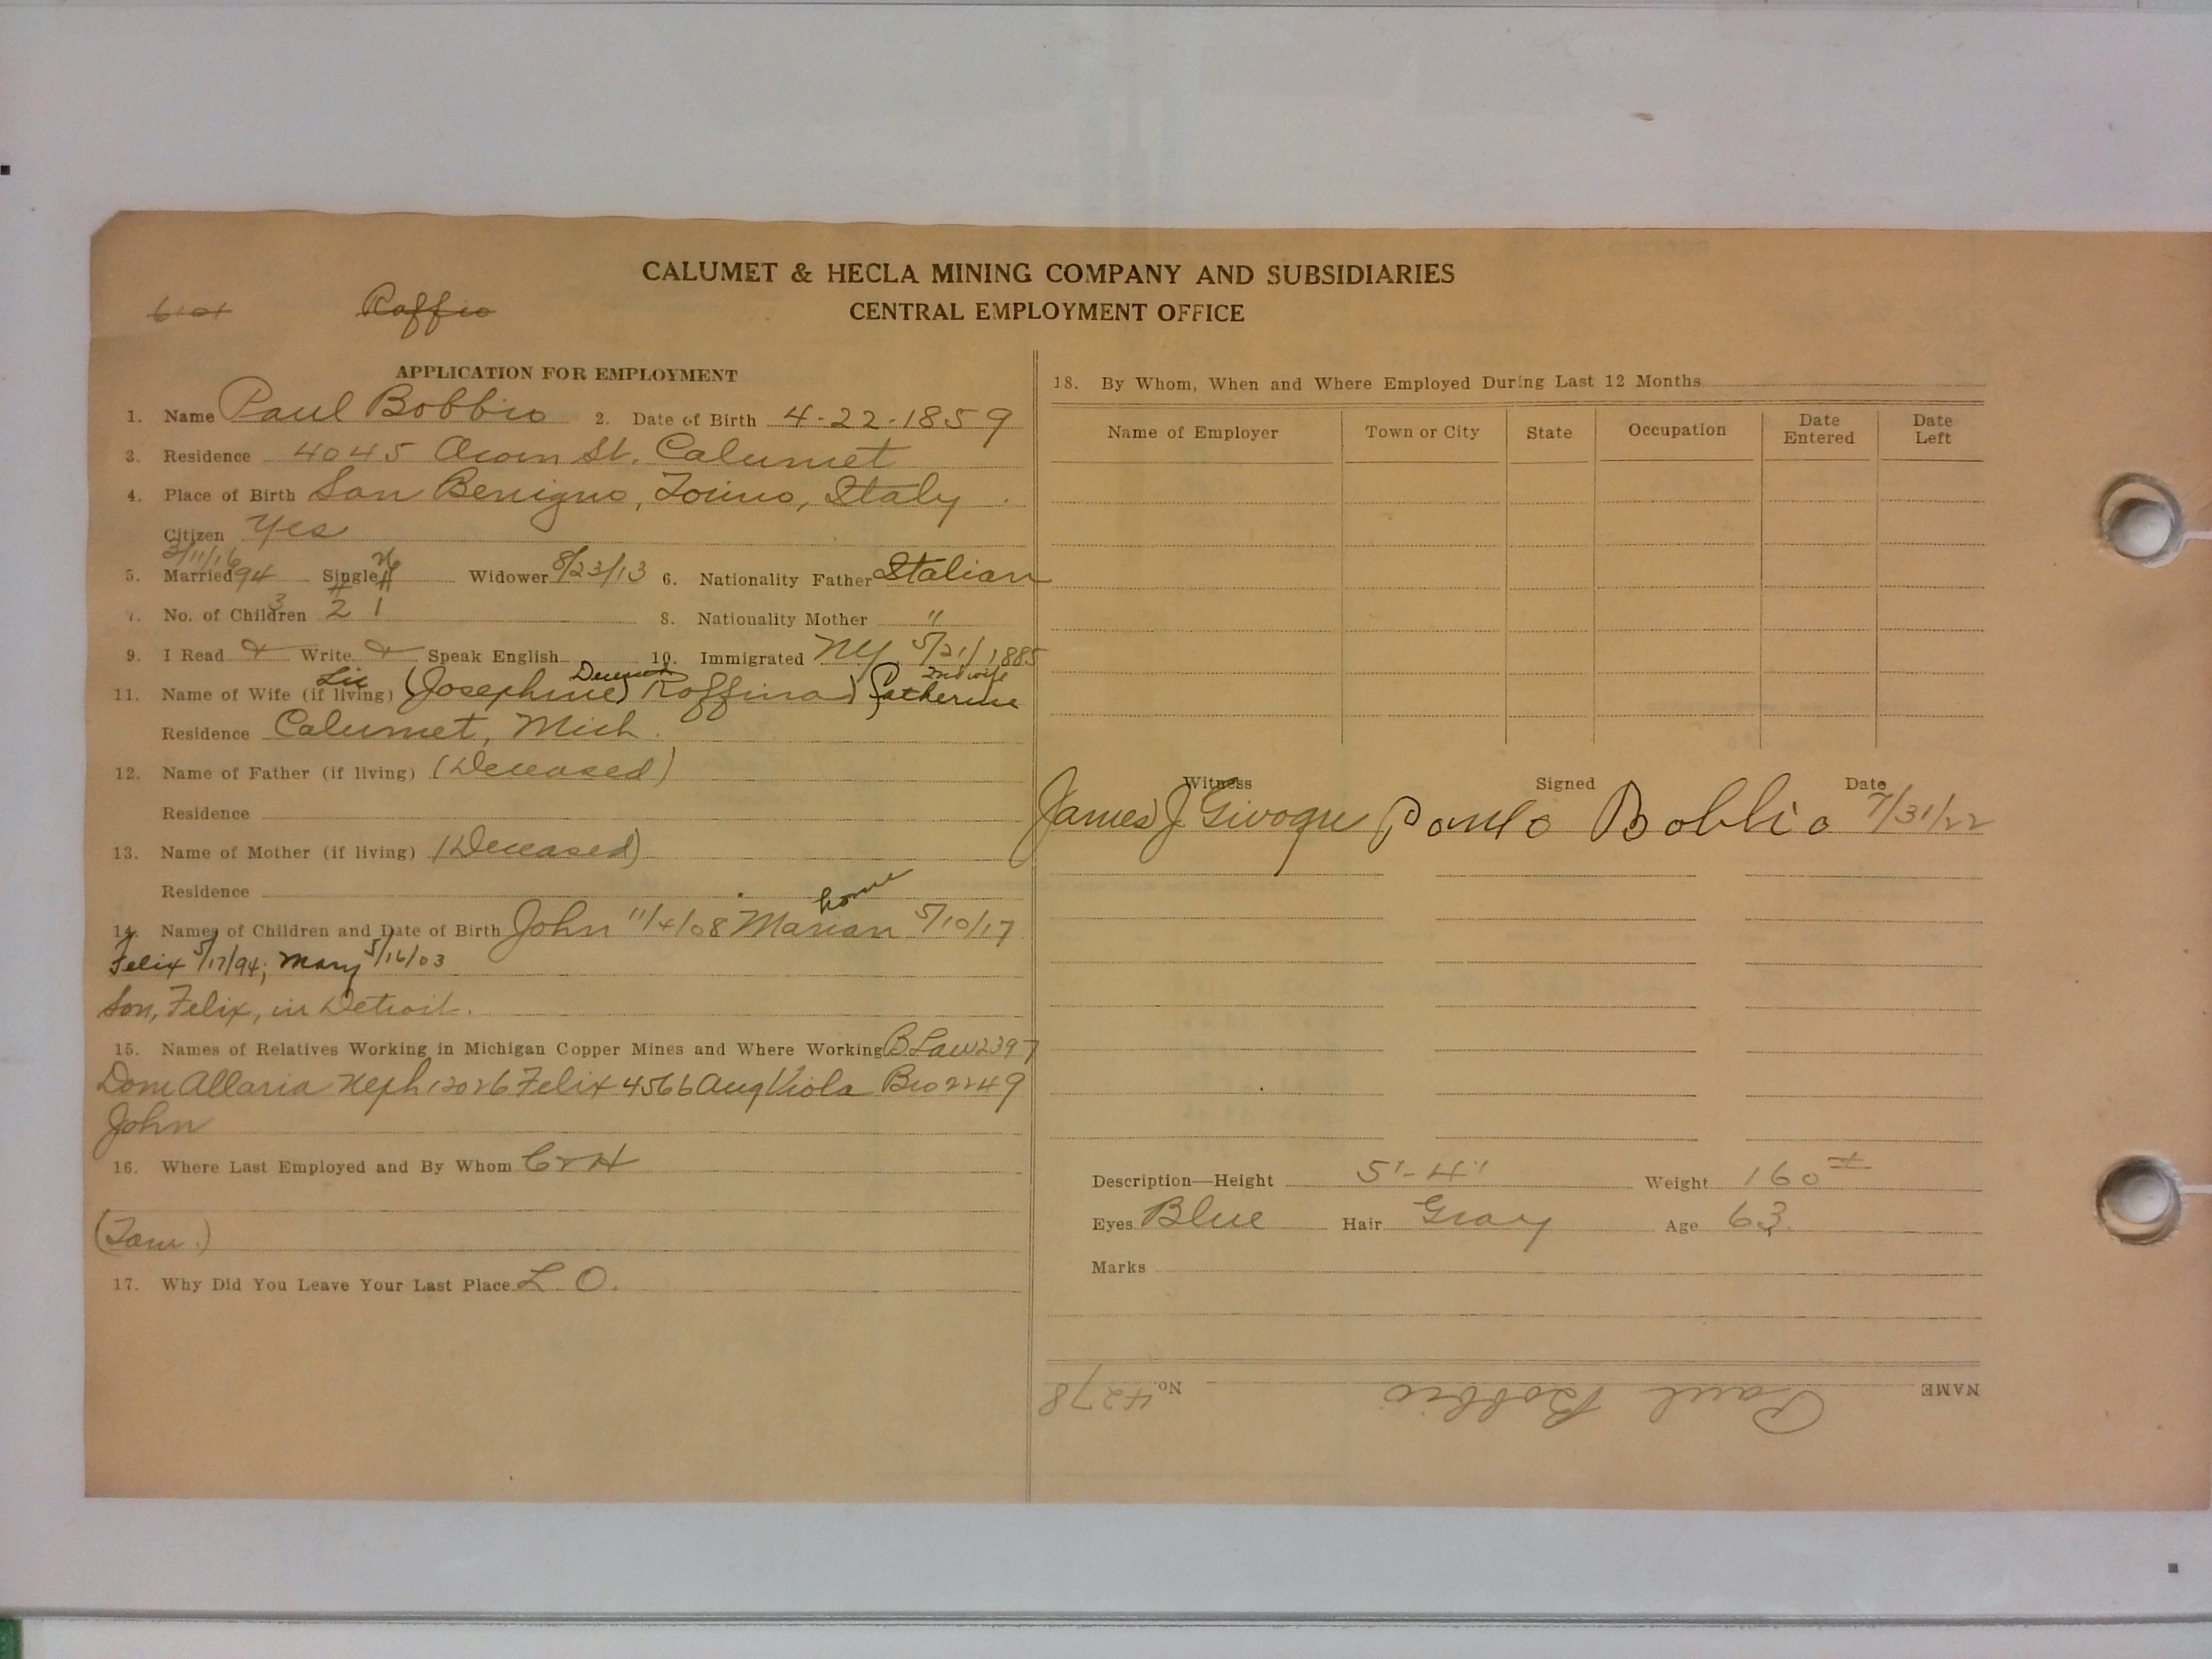 CALUMET & HECLA MINING COMPANY AND SUBSIDIARIES
CENTRAL EMPLOYMENT OFFICE
Raffio
APPLICATION FOR EMPLOYMENT
1. Name Paul Bobbio 2. Date of Birth 4-22-1859
3. Residence 4045 Acorn St. Calumet
4. Place of Birth San Benigno, Torino, Italy
Citizen Yes
3/11/16
5. Married 94 Single Widower 8/23/13 6. Nationality Father Italian
7. No. of Children 3 2 1 8. Nationality Mother "
9. I Read Write Speak English 10. Immigrated NY 5/21/1885
Deceased 2nd wife
11. Name of Wife (if living) (Josephine Roffino) Catherine
Residence Calumet, Mich.
12. Name of Father (if living) (Deceased)
Residence
13. Name of Mother (if living) (Deceased)
Residence
home
14. Names of Children and Date of Birth John 11/4/08 Marian 5/10/17
Felix 5/17/94; Mary 5/16/03
Son, Felix, in Detroit.
15. Names of Relatives Working in Michigan Copper Mines and Where Working B Law 2397
Dom Allaria Neph 12026 Felix 4566 Aug Viola Bro 2249
John
16. Where Last Employed and By Whom C & H
(Tam.)
17. Why Did You Leave Your Last Place L. O.
18. By Whom, When and Where Employed During Last 12 Months
Name of Employer Town or City State Occupation Date Entered Date Left
Witness Signed Date
James J Givogre Paulo Bobbio 7/31/22
Description—Height 5'-4" Weight 160#
Eyes Blue Hair Gray Age 63
Marks
NAME Paul Bobbio No. 4278